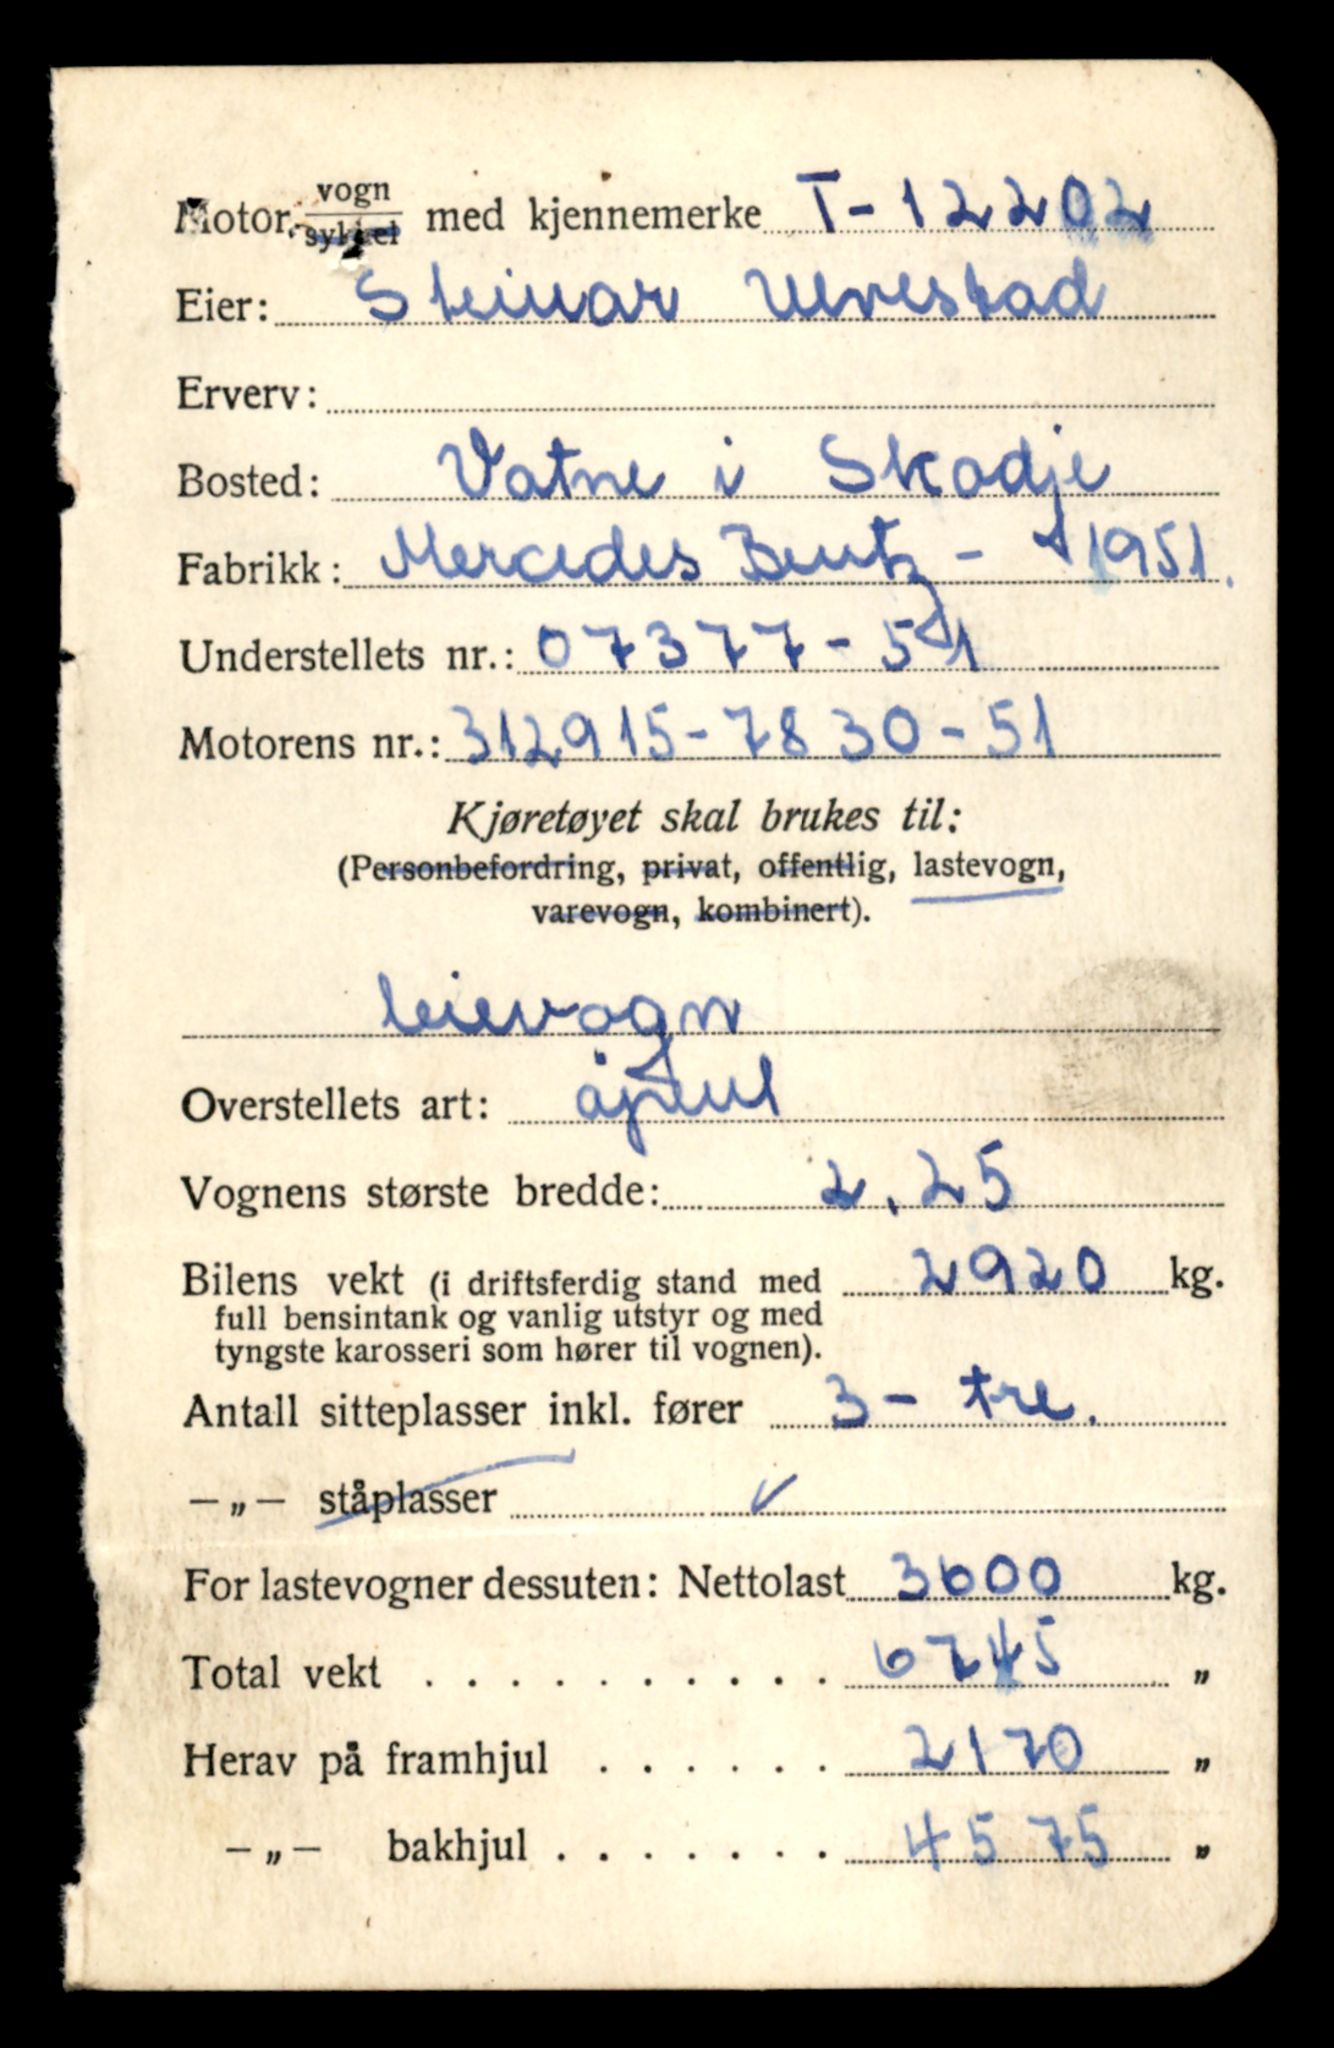 Motor- vogn/sykkel med kjennemerke T-12202
Eier: Steinar Ulvestad
Erverv:
Bosted: Vatne i Skodje
Fabrikk: Mercedes Bentz - 1951.
Understellets nr.: 07377-51
Motorens nr.: 312915-7830-51
Kjøretøyet skal brukes til:
(Personbefordring, privat, offentlig, lastevogn,
varevogn, kombinert).
leievogn
Overstellets art: åpent
Vognens største bredde: 2.25
Bilens vekt (i driftsferdig stand med 2920 kg.
full bensintank og vanlig utstyr og med
tyngste karosseri som hører til vognen).
Antall sitteplasser inkl. fører 3 - tre.
— „ — ståplasser
For lastevogner dessuten: Nettolast 3600 kg.
Total vekt . . . . . . . . . . 6745 „
Herav på framhjul . . . . . . 2170 „
— „ — bakhjul . . . . . . . 4575 „